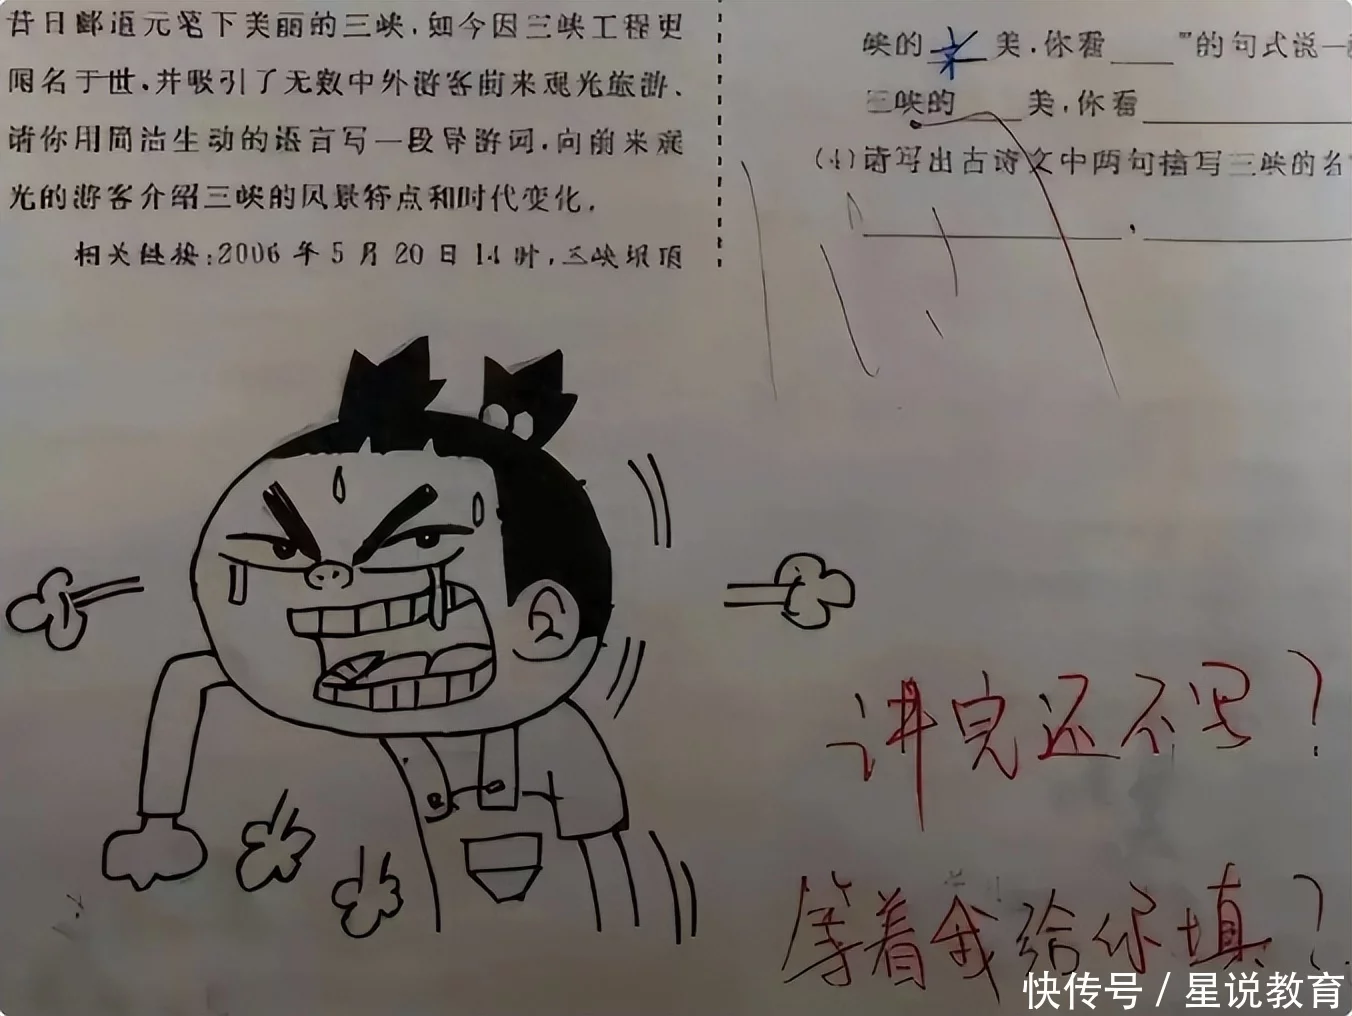 昔日郦道元笔下美丽的三峡,如今因三峡工程更
闻名于世,并吸引了无数中外游客前来观光旅游。
请你用简洁生动的语言写一段导游词,向前来观
光的游客介绍三峡的风景特点和时代变化。
相关链接:2006年5月20日14时,三峡坝顶
峡的 美,你看____"的句式说一
三峡的____美,你看
(4)请写出古诗文中两句描写三峡的名
,
讲完还不写?
等着我给你填?
快传号 / 星说教育